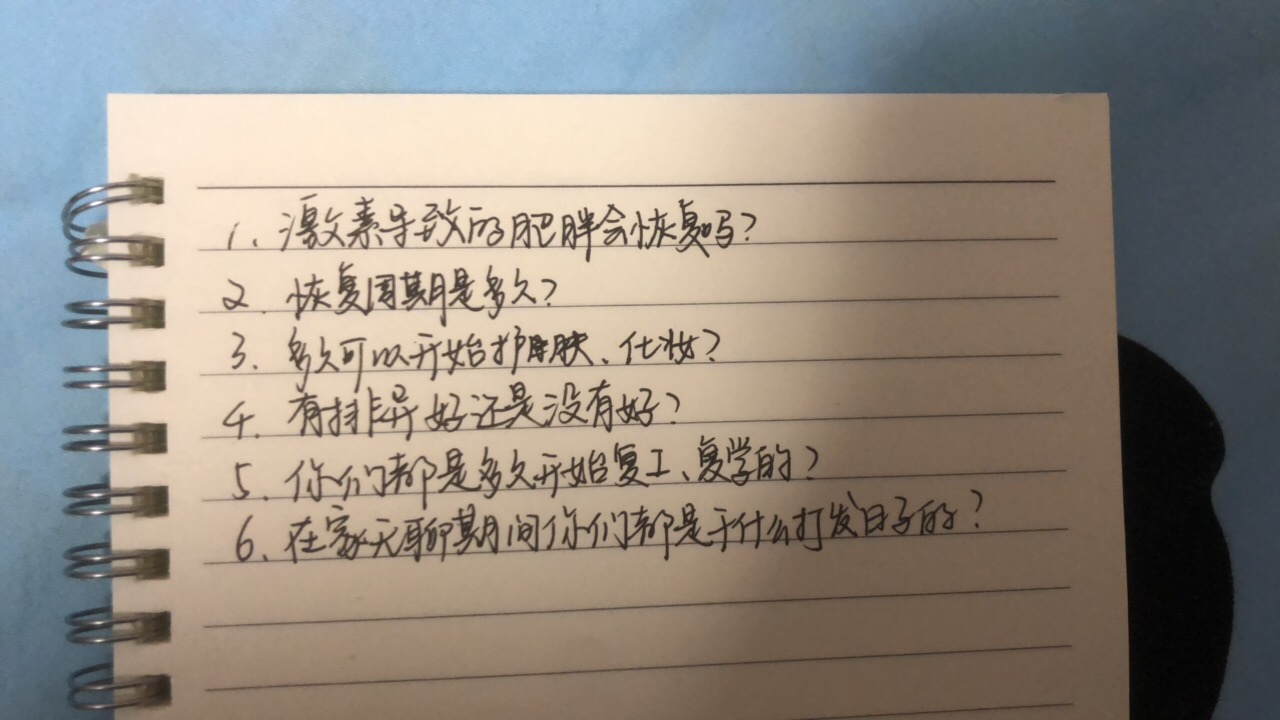 1. 激素导致的肥胖会恢复吗?
2. 恢复周期是多久?
3. 多久可以开始护肤、化妆?
4. 有排异好还是没有好?
5. 你们都是多久开始复工、复学的?
6. 在家无聊期间你们都是干什么打发日子的?